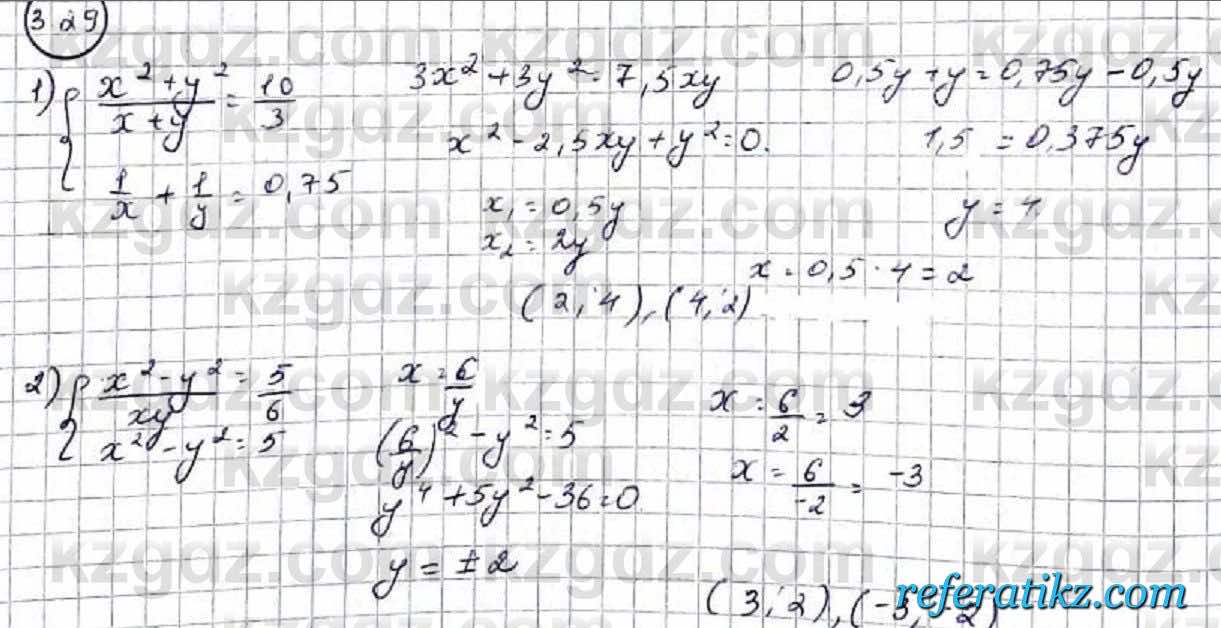 3.29
1) { (x² + y²)/(x + y) = 10/3
1/x + 1/y = 0,75
3x² + 3y² = 7,5xy
x² - 2,5xy + y² = 0.
x₁ = 0,5y
x₂ = 2y
0,5y + y = 0,75y - 0,5y
1,5 = 0,375y
y = 4
x = 0,5 · 4 = 2
(2; 4), (4; 2)
2) { (x² - y²)/xy = 5/6
x² - y² = 5
x = 6/y
(6/y)² - y² = 5
y⁴ + 5y² - 36 = 0
y = ±2
x = 6/2 = 3
x = 6/-2 = -3
(3; 2), (-3; -2)
referatikz.com
kzgdz.com